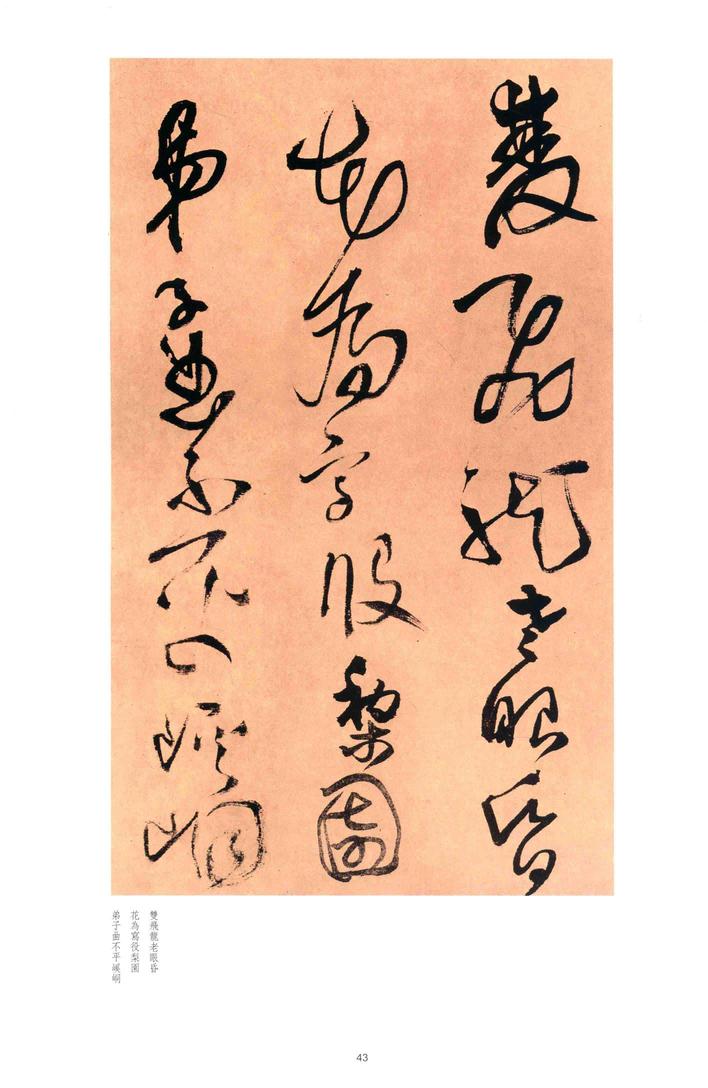 雙飛龍老眼昏
花為寫役梨園
弟子曲不平崆峒
雙飛龍老眼昏
花為寫役梨園
弟子曲不平崆峒
43